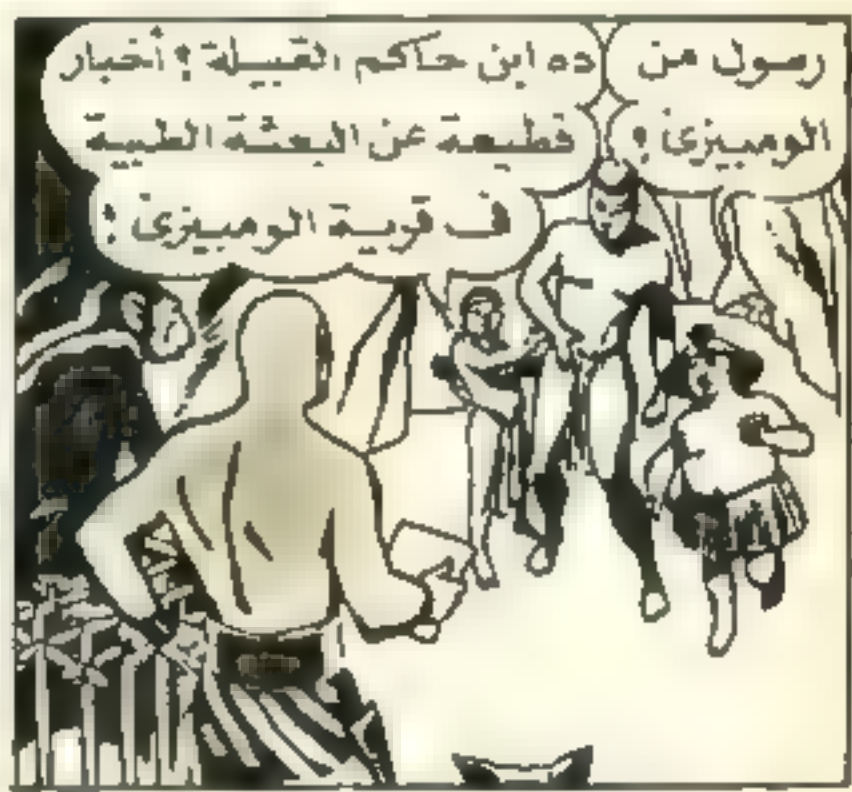 رسول من
الومبيزى !
ده ابن حاكم القبيلة ! أخبار
فظيعة عن البعثة الطبية
ف قرية الومبيزى !